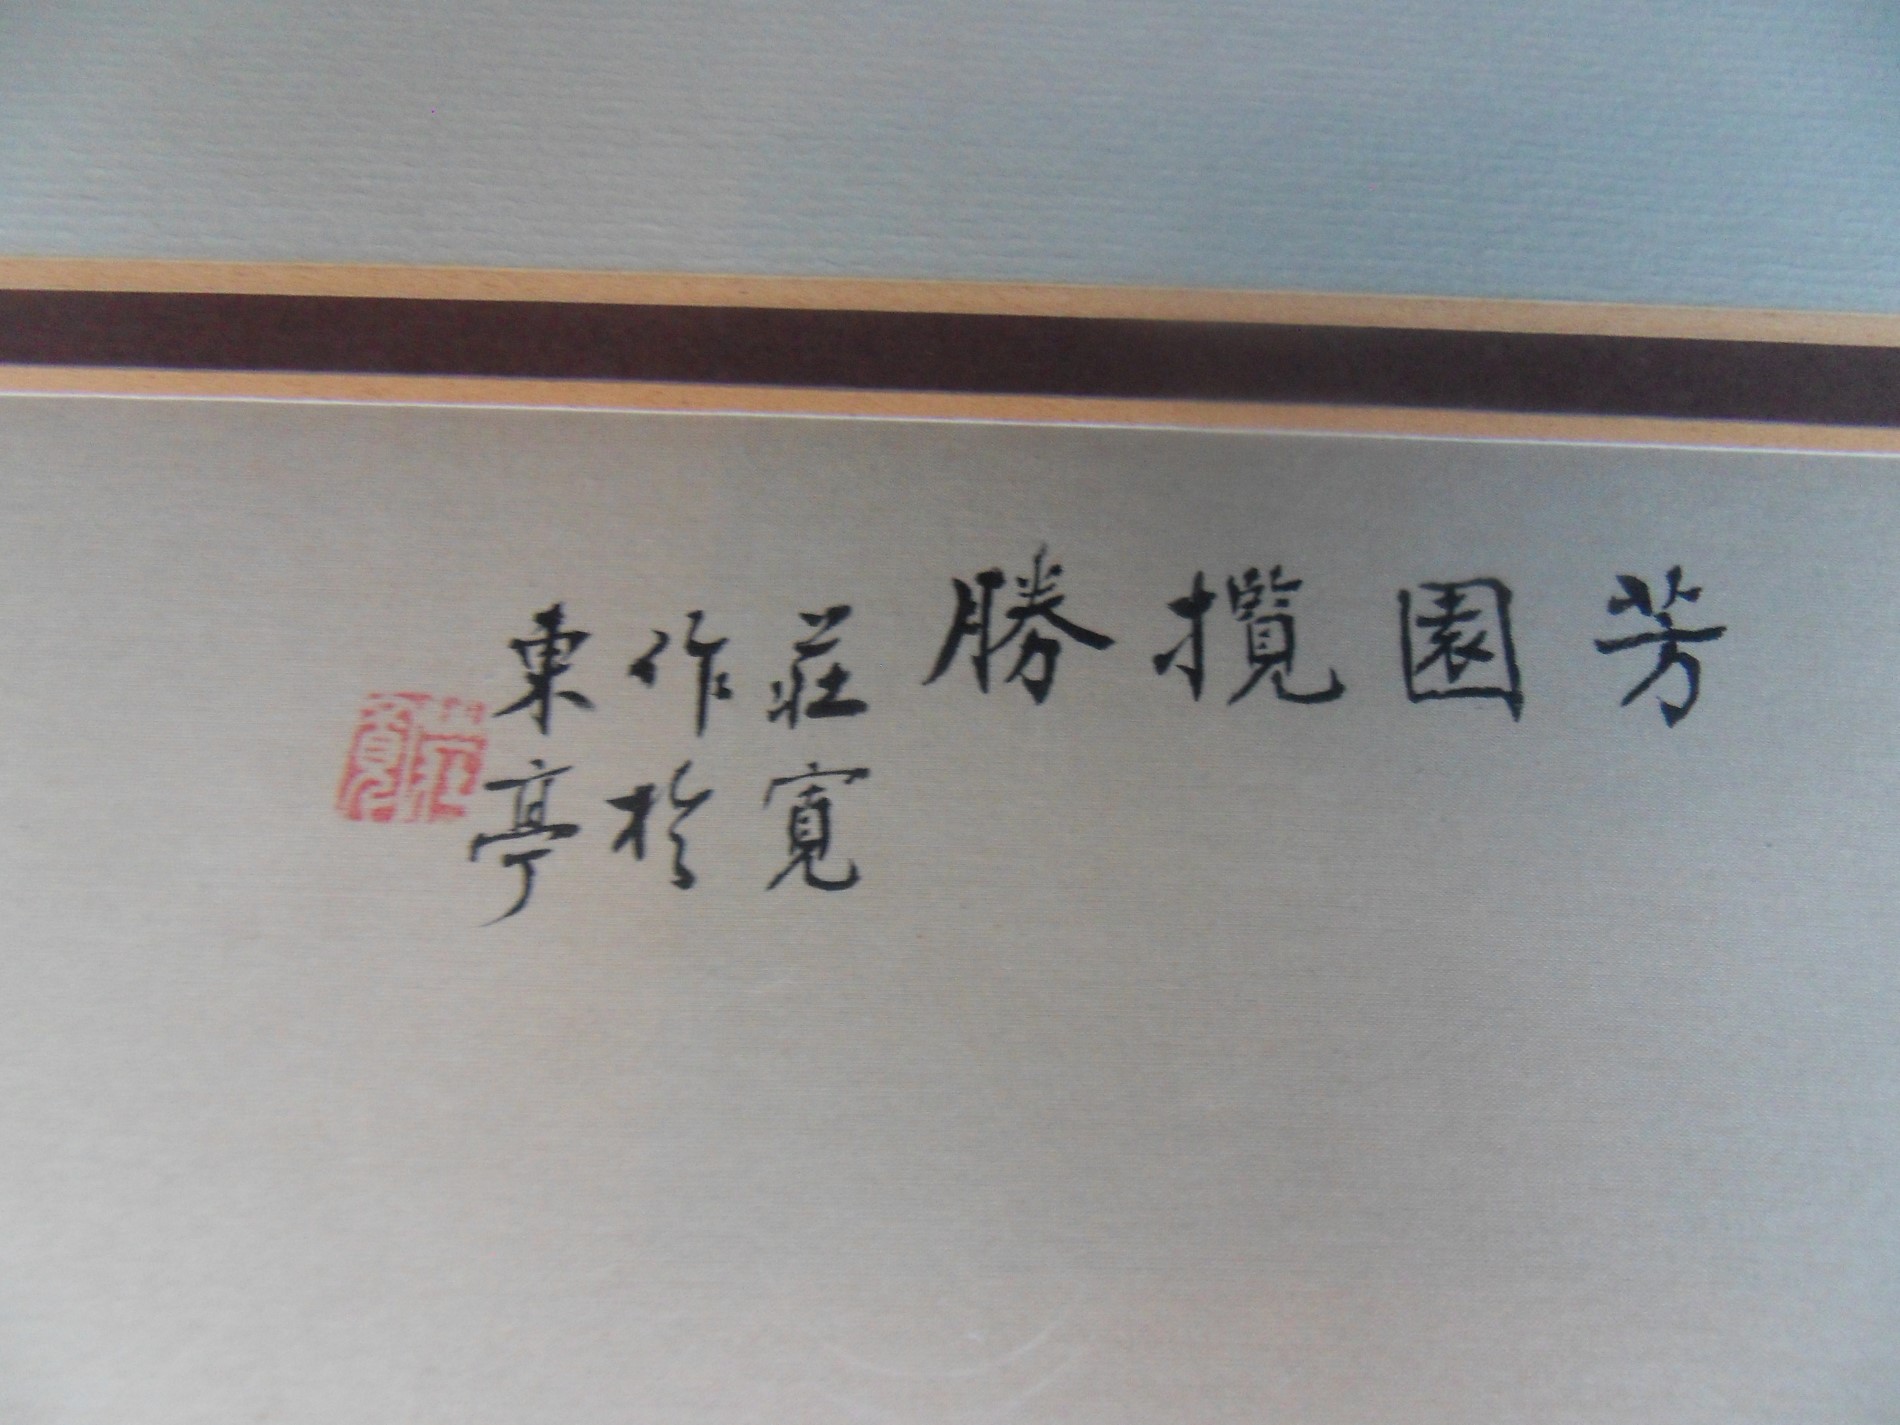 芳園攬勝
莊寬
作於
東亭
莊寬